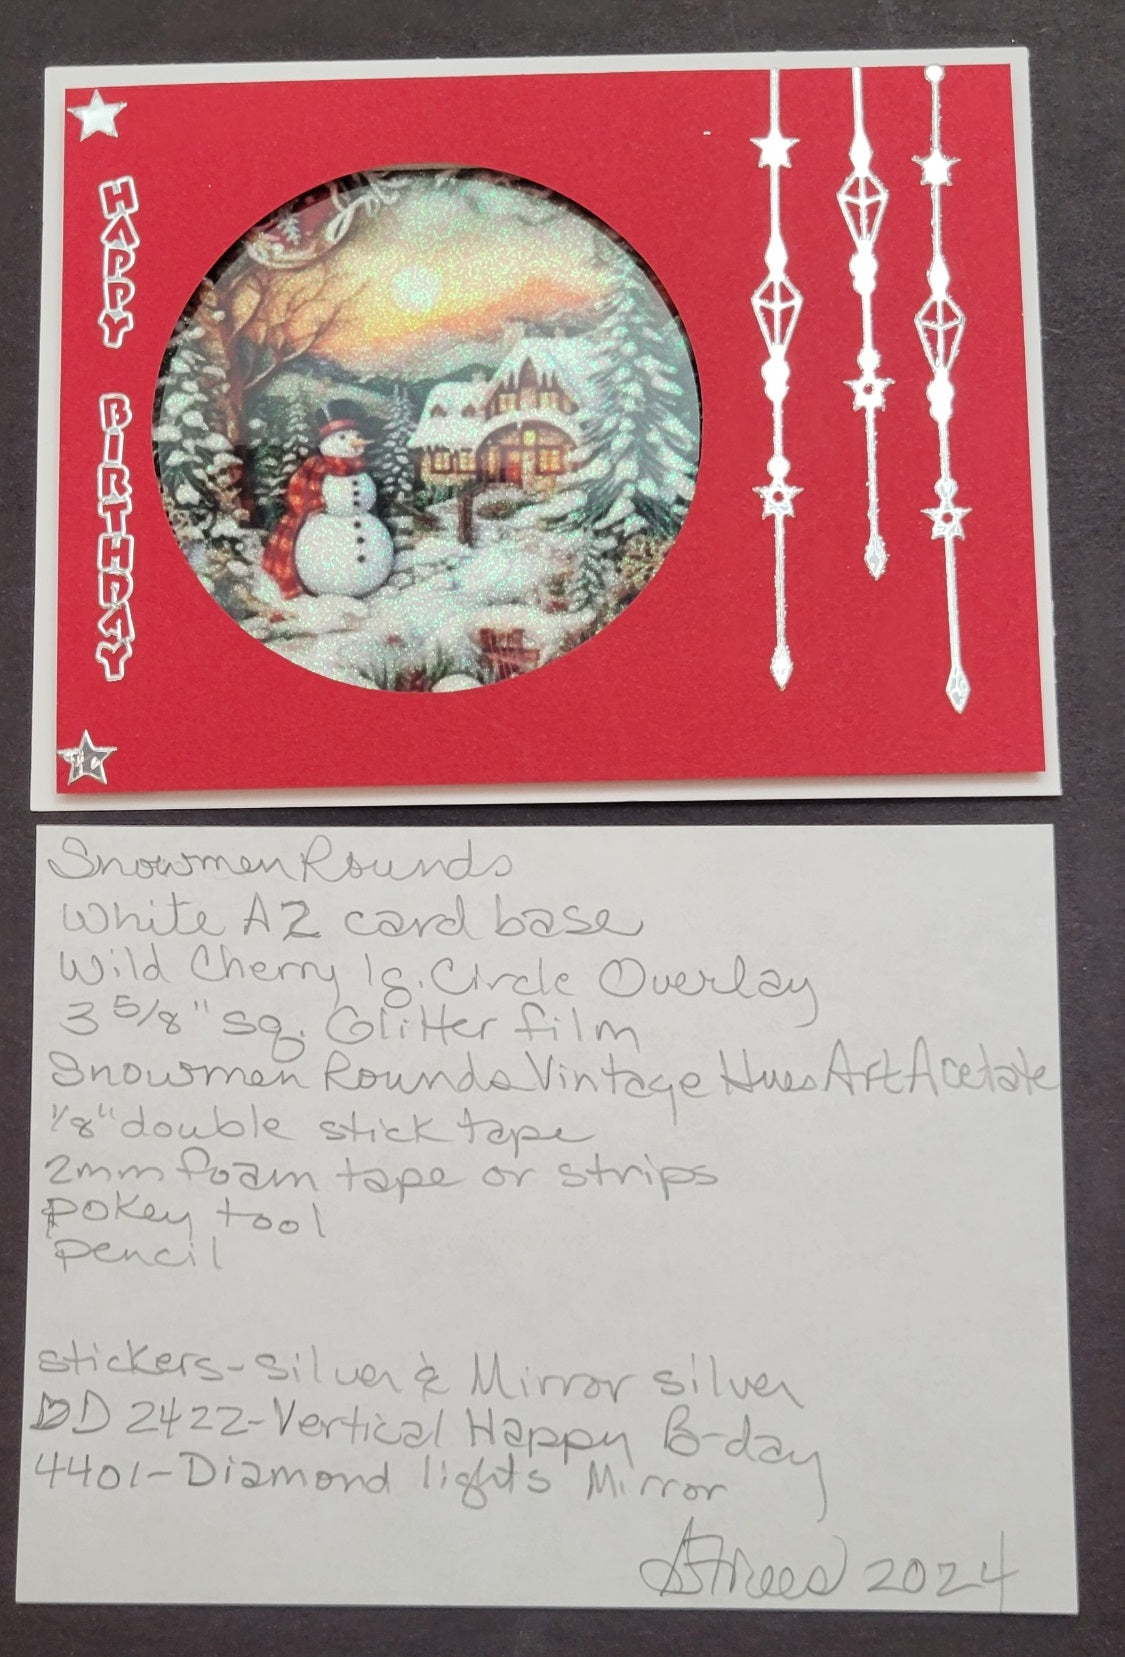 HAPPY BIRTHDAY
Snowmen Rounds
White A2 card base
Wild Cherry lg. Circle Overlay
3 5/8" sq. Glitter film
Snowmen Rounds Vintage Hues Art Acetate
1/8" double stick tape
2mm foam tape or strips
pokey tool
pencil
stickers - silver & Mirror silver
DD 2422 - Vertical Happy B-day
4401 - Diamond lights Mirror
2024